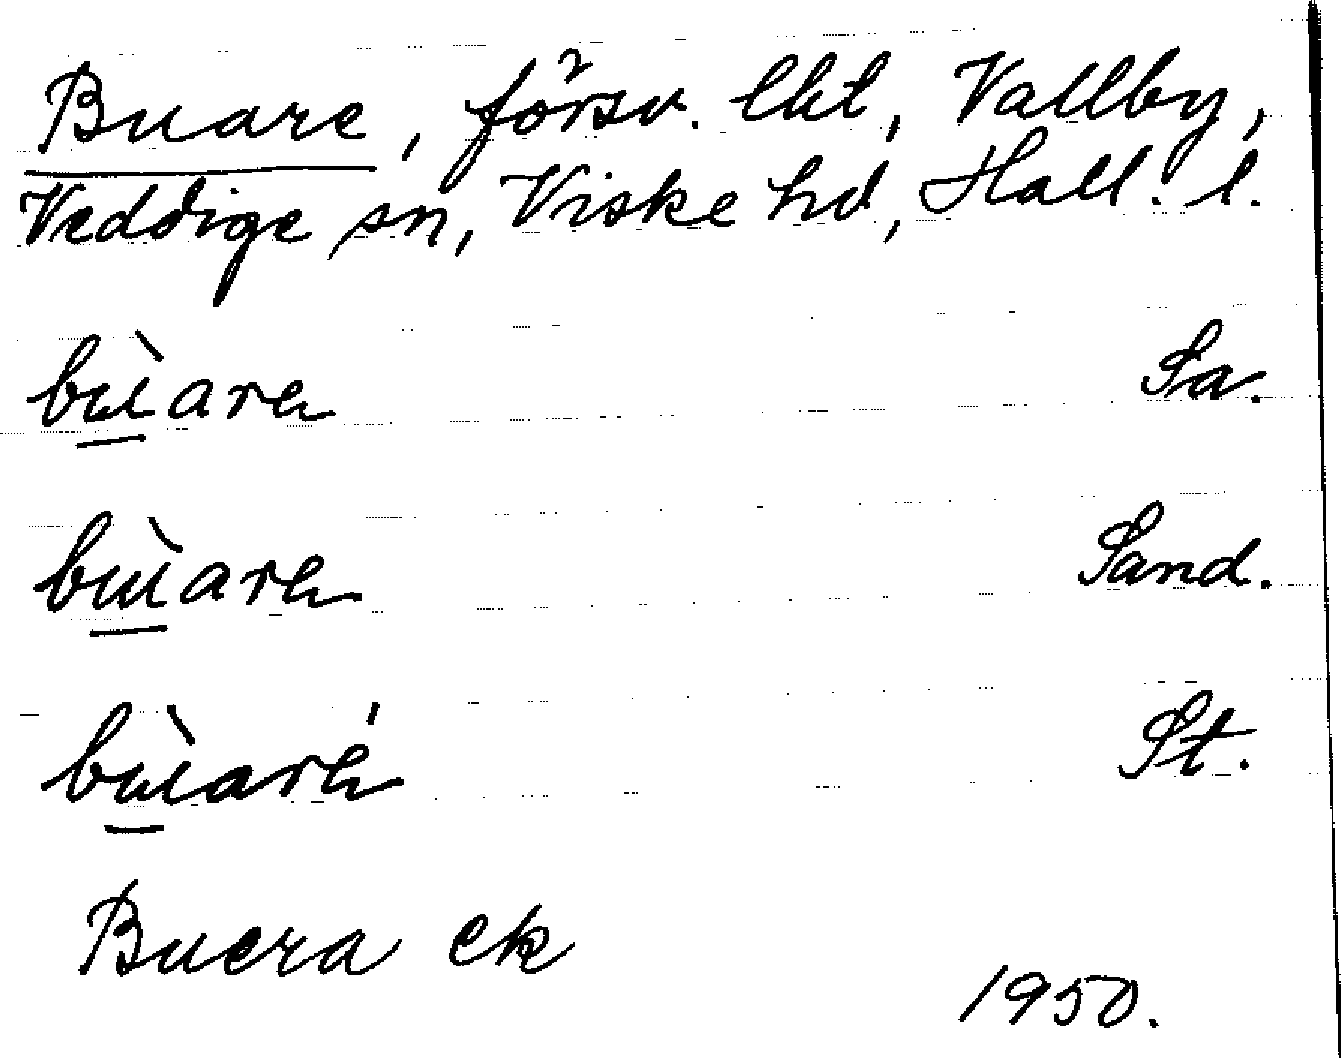 Buare, försv. lht, Vallby,
Veddige sn, Viske hd, Hall. l.
bù̱arə Sa.
bù̱arə Sand.
bù̱arə́ St.
Buera ek
1950.